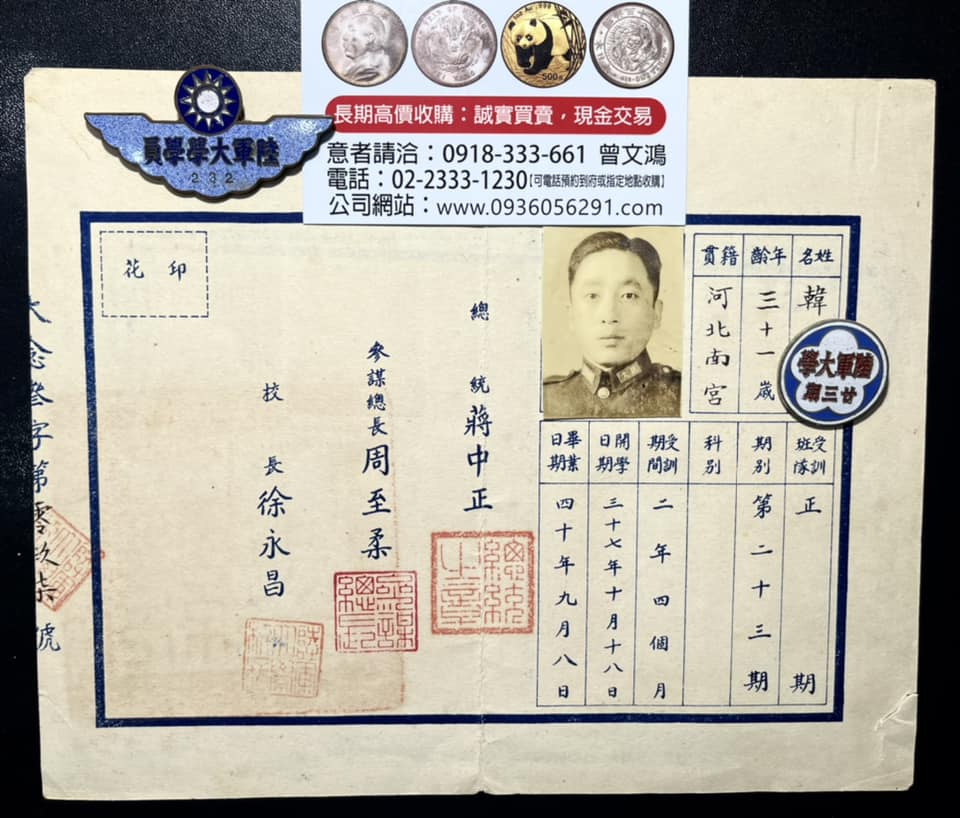 長期高價收購：誠實買賣，現金交易
意者請洽：0918-333-661 曾文鴻
電話：02-2333-1230【可電話預約到府或指定地點收購】
公司網站：www.0936056291.com
陸軍大學學員
232
陸軍大學
廿三期
姓名 韓
年齡 三十一歲
籍貫 河北南宮
受訓班隊 正期
期別 第二十三期
科別
受訓期間 二年四個月
開學日期 三十七年十月十八日
畢業日期 四十年九月八日
總統 蔣中正
總統之章
參謀總長 周至柔
參謀總長
校長 徐永昌
印花
字第零玖柒號